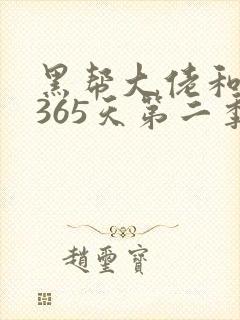 黑帮大佬和
365天第二季
趙璽寶